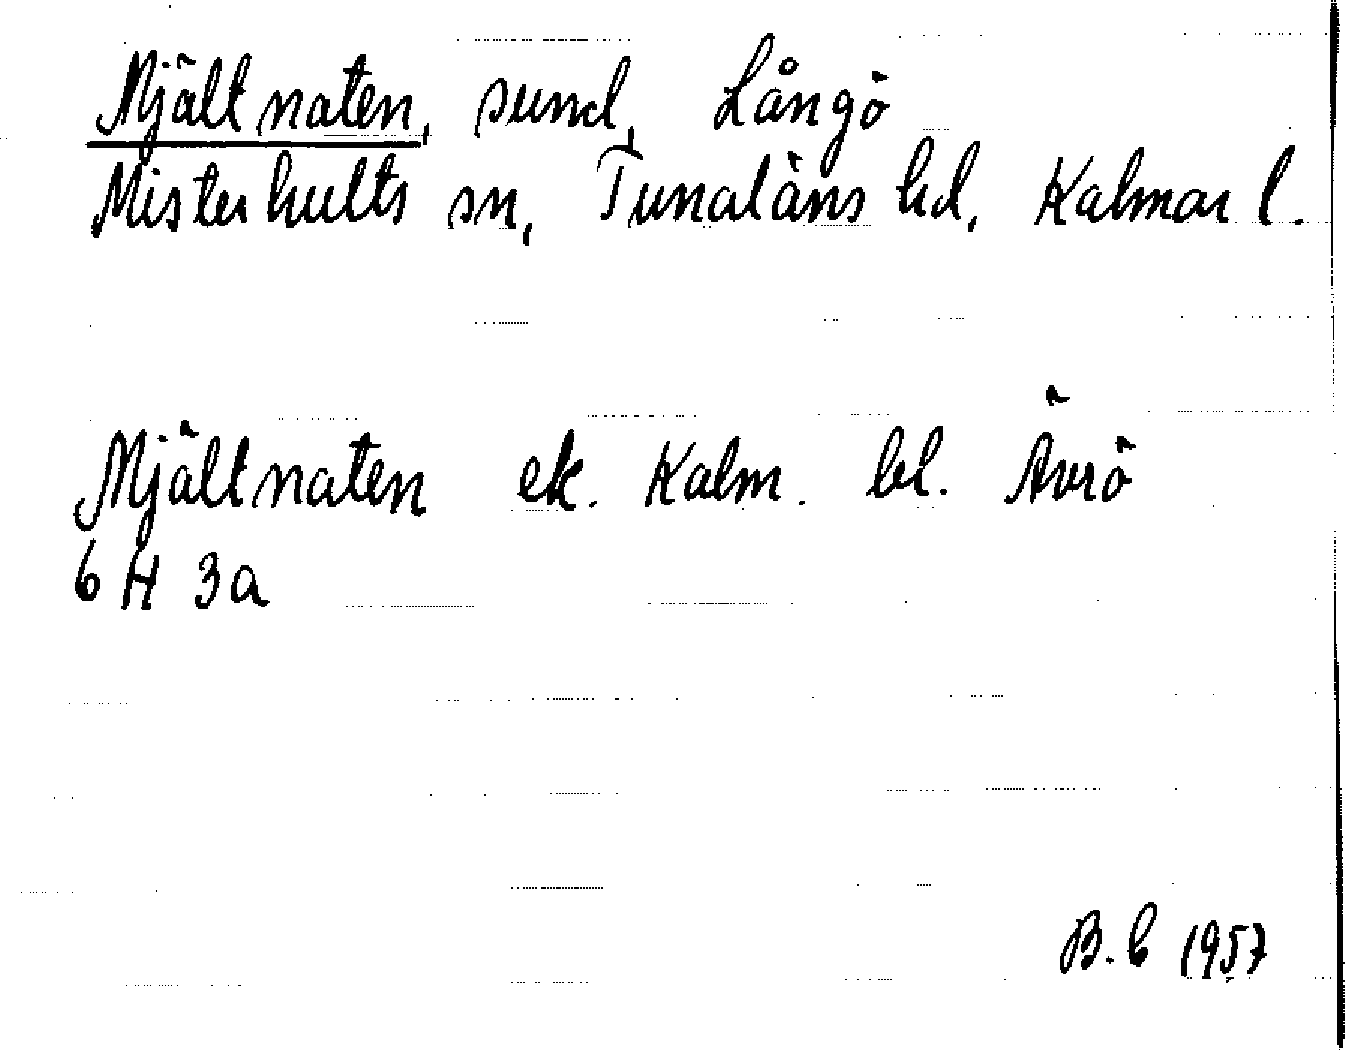 Mjältnaten, sund, Långö
Misterhults sn, Tunaläns hd, Kalmar l.
Mjältnaten ek. Kalm. bl. Ävrö
6 H 3a
B. b 1957